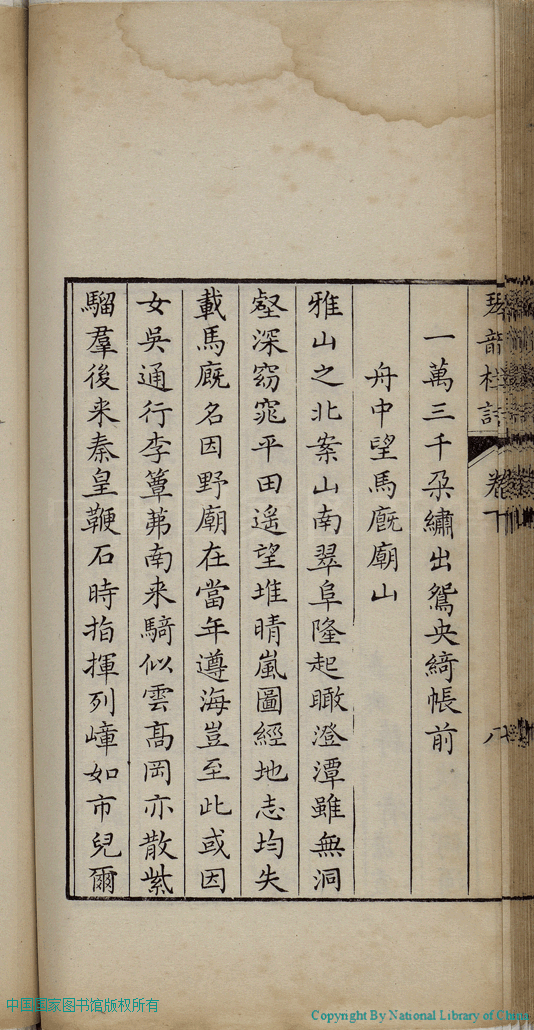 卷下
八
一萬三千朶繡出鴛央綺帳前
舟中望馬廐廟山
雅山之北案山南翠阜隆起瞰澄潭雖無洞
壑深窈窕平田遙望堆晴嵐圖經地志均失
載馬廐名因野廟在當年遵海豈至此或因
女吳通行李簟茀南来騎似雲高岡亦散紫
騮羣後来秦皇鞭石時指揮列嶂如市兒爾
中国国家图书馆版权所有
Copyright By National Library of China